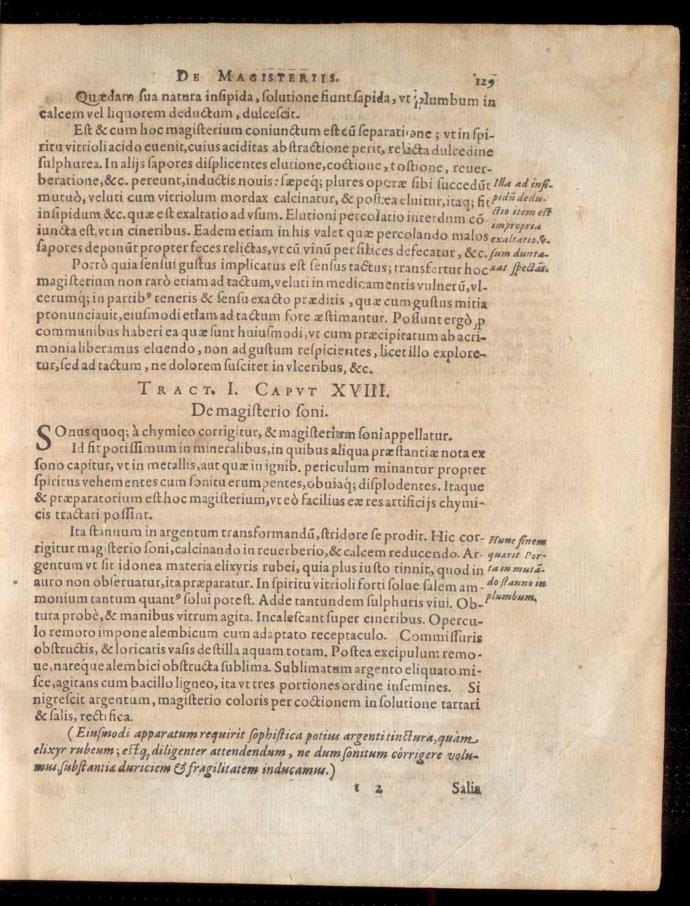 DE MAGISTERIIS. 129
Quædam sua natura insipida, solutione fiunt sapida, vt plumbum in
calcem vel liquorem deductum, dulcescit.
Est & cum hoc magisterium coniunctum est cũ separatione; vt in spi-
ritu vitrioli acido euenit, cuius aciditas abstractione perit, relicta dulcedine
sulphurea. In alijs sapores displicentes elutione, coctione, tostione, reuer-
beratione, &c. pereunt, inductis nouis: sæpeq; plures operæ sibi succedũt
mutuò, veluti cum vitriolum mordax calcinatur, & postea eluitur, itaq; fit
insipidum &c. quæ est exaltatio ad vsum. Elutioni percolatio interdum cõ-
iuncta est, vt in cineribus. Eadem etiam in his valet quæ percolando malos
sapores deponũt propter feces relictas, vt cũ vinũ per silices defecatur, &c.
Illa ad insi-
pidũ dedu-
ctio item est
impropria
exaltatio, &
sum dunta-
xat spectãs.
Porrò quia sensui gustus implicatus est sensus tactus; transfertur hoc
magisterium non rarò etiam ad tactum, veluti in medicamentis vulnerũ, vl-
cerumq; in partibꝰ teneris & sensu exacto præditis, quæ cum gustus mitia
pronunciauit, eiusmodi etiam ad tactum fore æstimantur. Possunt ergò ꝓ
communibus haberi ea quæ sunt huiusmodi, vt cum præcipitatum ab acri-
monia liberamus eluendo, non ad gustum respicientes, licet illo explore-
tur, sed ad tactum, ne dolorem suscitet in vlceribus, &c.
TRACT. I. CAPVT XVIII.
De magisterio soni.
SOnus quoq; à chymico corrigitur, & magisterium soni appellatur.
Id fit potissimum in mineralibus, in quibus aliqua præstantiæ nota ex
sono capitur, vt in metallis, aut quæ in ignib. periculum minantur propter
spiritus vehementes cum sonitu erumpentes, obuiaq; displodentes. Itaque
& præparatorium est hoc magisterium, vt eò facilius eæ res artificijs chymi-
cis tractari possint.
Ita stannum in argentum transformandũ, stridore se prodit. Hic cor-
rigitur magisterio soni, calcinando in reuerberio, & calcem reducendo. Ar-
gentum vt sit idonea materia elixyris rubei, quia plus iusto tinnit, quod in
auro non obseruatur, ita præparatur. In spiritu vitrioli forti solue salem am-
monium tantum quantꝰ solui potest. Adde tantundem sulphuris viui. Ob-
tura probè, & manibus vitrum agita. Incalescant super cineribus. Opercu-
lo remoto impone alembicum cum adaptato receptaculo. Commissuris
obstructis, & loricatis vasis destilla aquam totam. Postea excipulum remo-
ue, nareque alembici obstructa sublima. Sublimatum argento eliquato mi-
sce, agitans cum bacillo ligneo, ita vt tres portiones ordine insemines. Si
nigrescit argentum, magisterio coloris per coctionem in solutione tartari
& salis, rectifica.
Hunc finem
quærit Por-
ta in mutã-
do stanno in
plumbum.
(Eiusmodi apparatum requirit sophistica potius argenti tinctura, quàm
elixyr rubeum; estq; diligenter attendendum, ne dum sonitum corrigere volu-
mus, substantiæ duriciem & fragilitatem inducamus.)
t 2 Salia